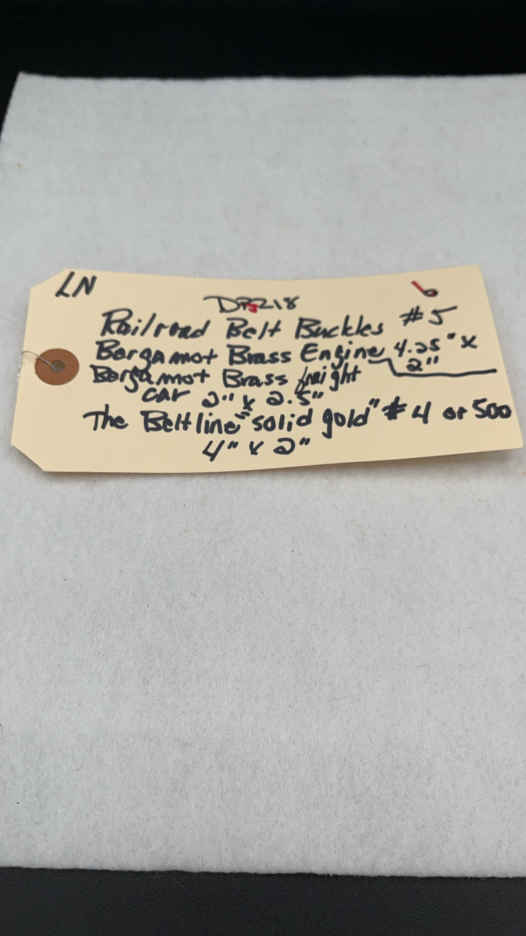 LN
6
DB218
Railroad Belt Buckles #5
Bergamot Brass Engine 4.25" x 2"
Bergamot Brass freight
car 2" x 2.5"
The Beltline "solid gold" # 4 of 500
4" x 2"